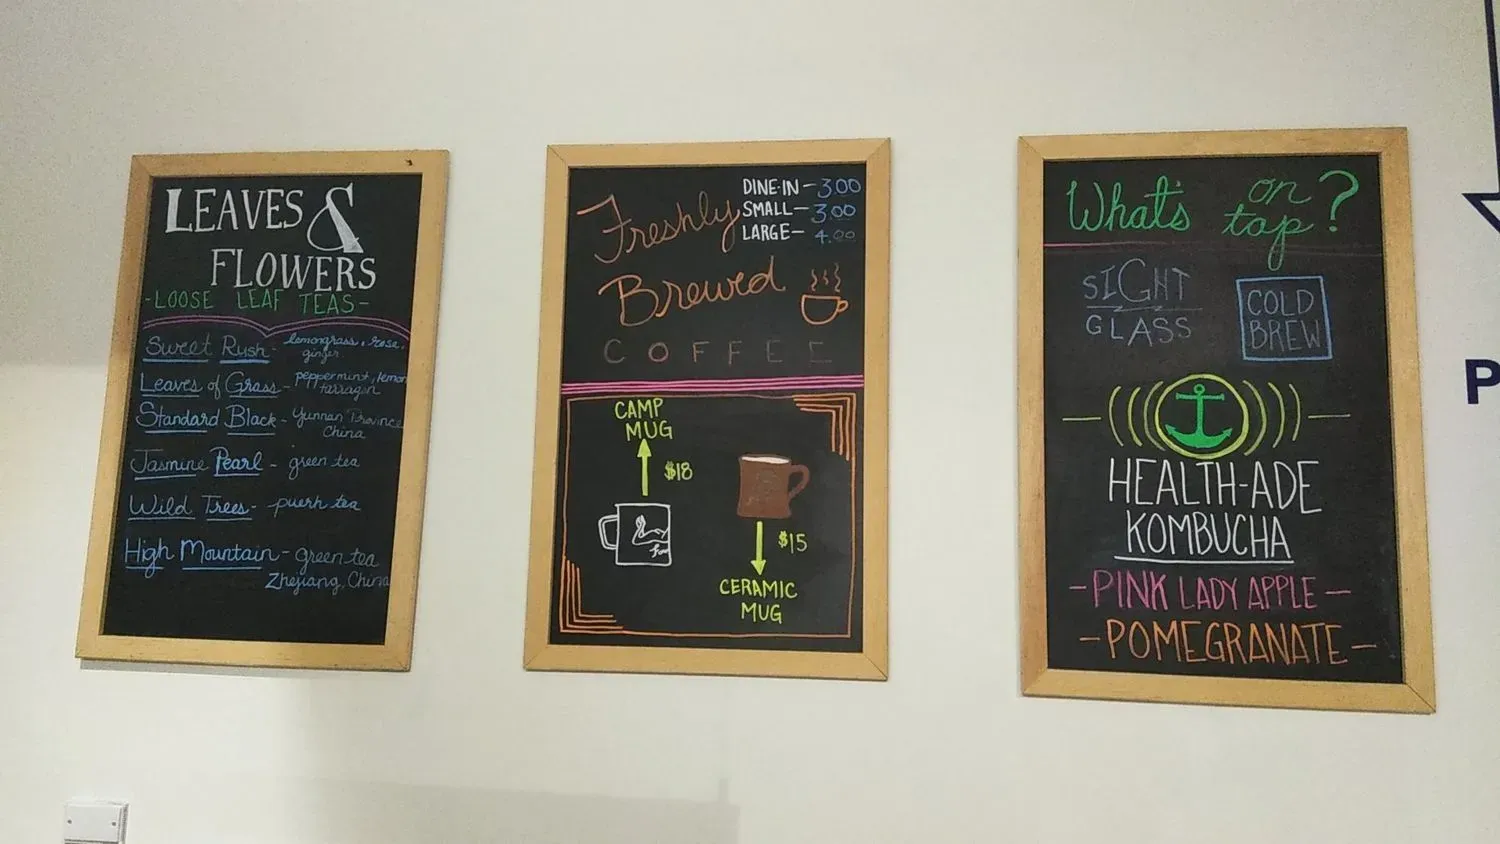 LEAVES &
FLOWERS
-LOOSE LEAF TEAS-
Sweet Rush - lemongrass, rose,
ginger
Leaves of Grass - peppermint, lemon
tarragon
Standard Black - Yunnan Province
China
Jasmine Pearl - green tea
Wild Trees - puerh tea
High Mountain - green tea
Zhejiang, China
Freshly
DINE-IN - 3.00
SMALL - 3.00
LARGE - 4.00
Brewed
COFFEE
CAMP
MUG
$18
$15
CERAMIC
MUG
What's on
tap?
SIGHT
GLASS
COLD
BREW
HEALTH-ADE
KOMBUCHA
-PINK LADY APPLE-
-POMEGRANATE-
P